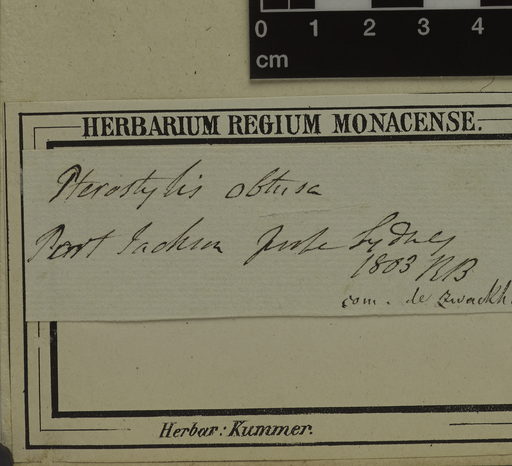 0 1 2 3 4
cm
HERBARIUM REGIUM MONACENSE.
Pterostylis obtusa
Port Jackson Sydney
1803 RB
com. de Zwackh.
Herbar: Kummer.